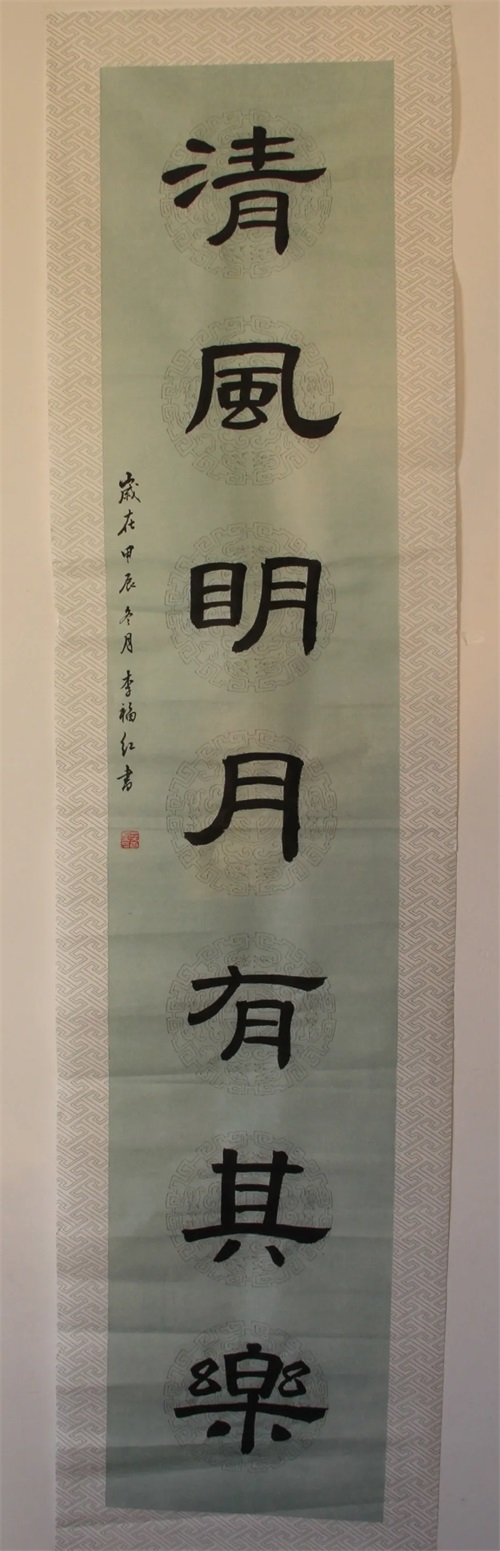 清風明月有其樂
歲在甲辰冬月 李福紅書